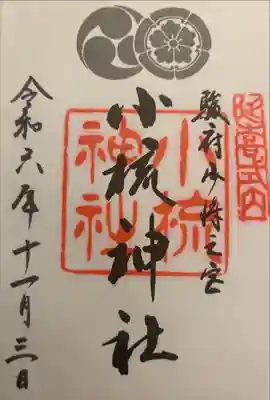 延喜式内
駿府少将之宮
小梳神社
小梳神社
令和六年十一月三日